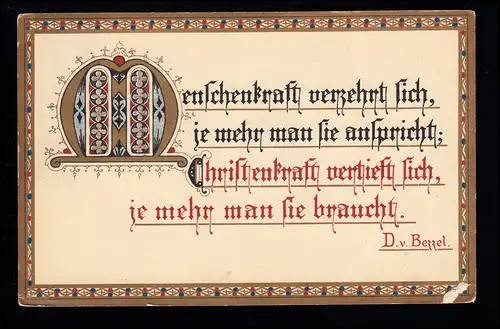 Menschenkraft verzehrt sich,
je mehr man sie anspricht;
Christenkraft vertieft sich,
je mehr man sie braucht.
D. v. Bezzel.